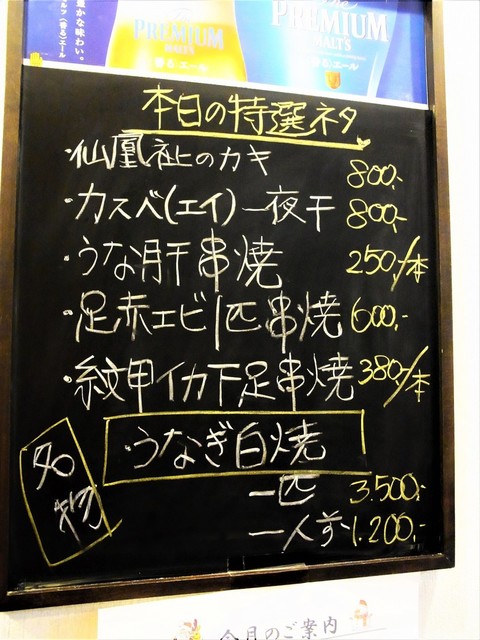 豊かな味わい。
ルフ〈香る〉エール
PREMIUM
MALT'S
香るエール
The
PREMIUM
MALT'S
〈香る〉エール
本日の特選ネタ
・仙鳳祉のカキ 800,-
・カスベ(エイ)一夜干 800,-
・うな肝串焼 250,-/本
・足赤エビ1匹串焼 600,-
・紋甲イカ下足串焼 380,-/本
名物
・うなぎ白焼
一匹 3.500,-
一人前 1.200,-
今月のご案内